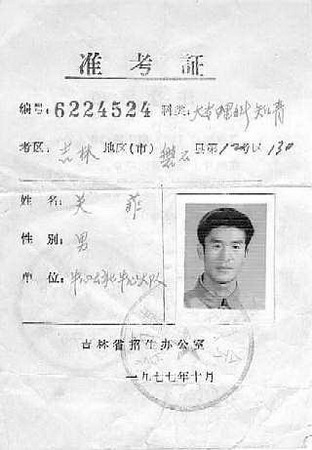 准考证
编号: 6224524 科类: 大本理科 知青
考区: 吉林 地区(市) 磐石 县第 130
姓名: 关菲
性别: 男
单位:
吉林省招生办公室
一九七七年十月